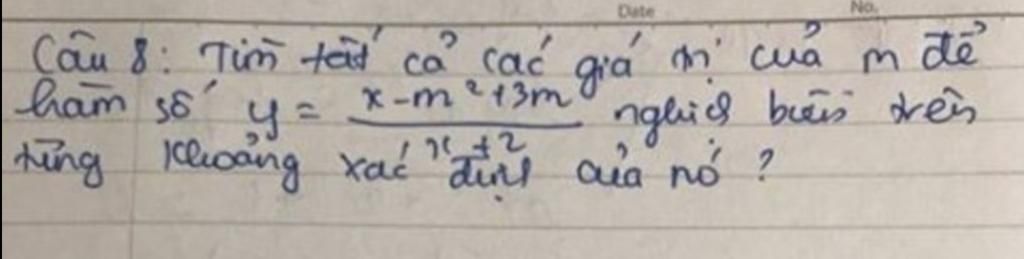 Date No.
Câu 8: Tìm tất cả các giá trị của m để
hàm số y = x - m² + 3m / x + 2 nghịch biến trên
từng khoảng xác định của nó ?